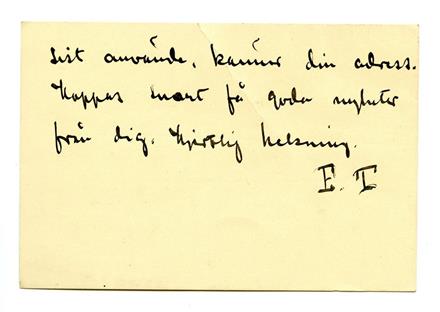 sist använde, känner din adress.
Hoppas snart få goda nyheter
från dig. Hjärtlig hälsning.
E. T